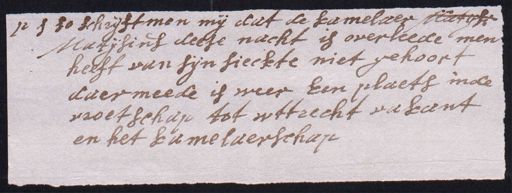 p s so schryft men my dat de kamelaer
Matysius deese nacht is overleede men
heeft van syn sieckte niet gehoort
daermeede is weer een plaets inde
vroetschap tot wttrecht vakant
en het kamelaerschap